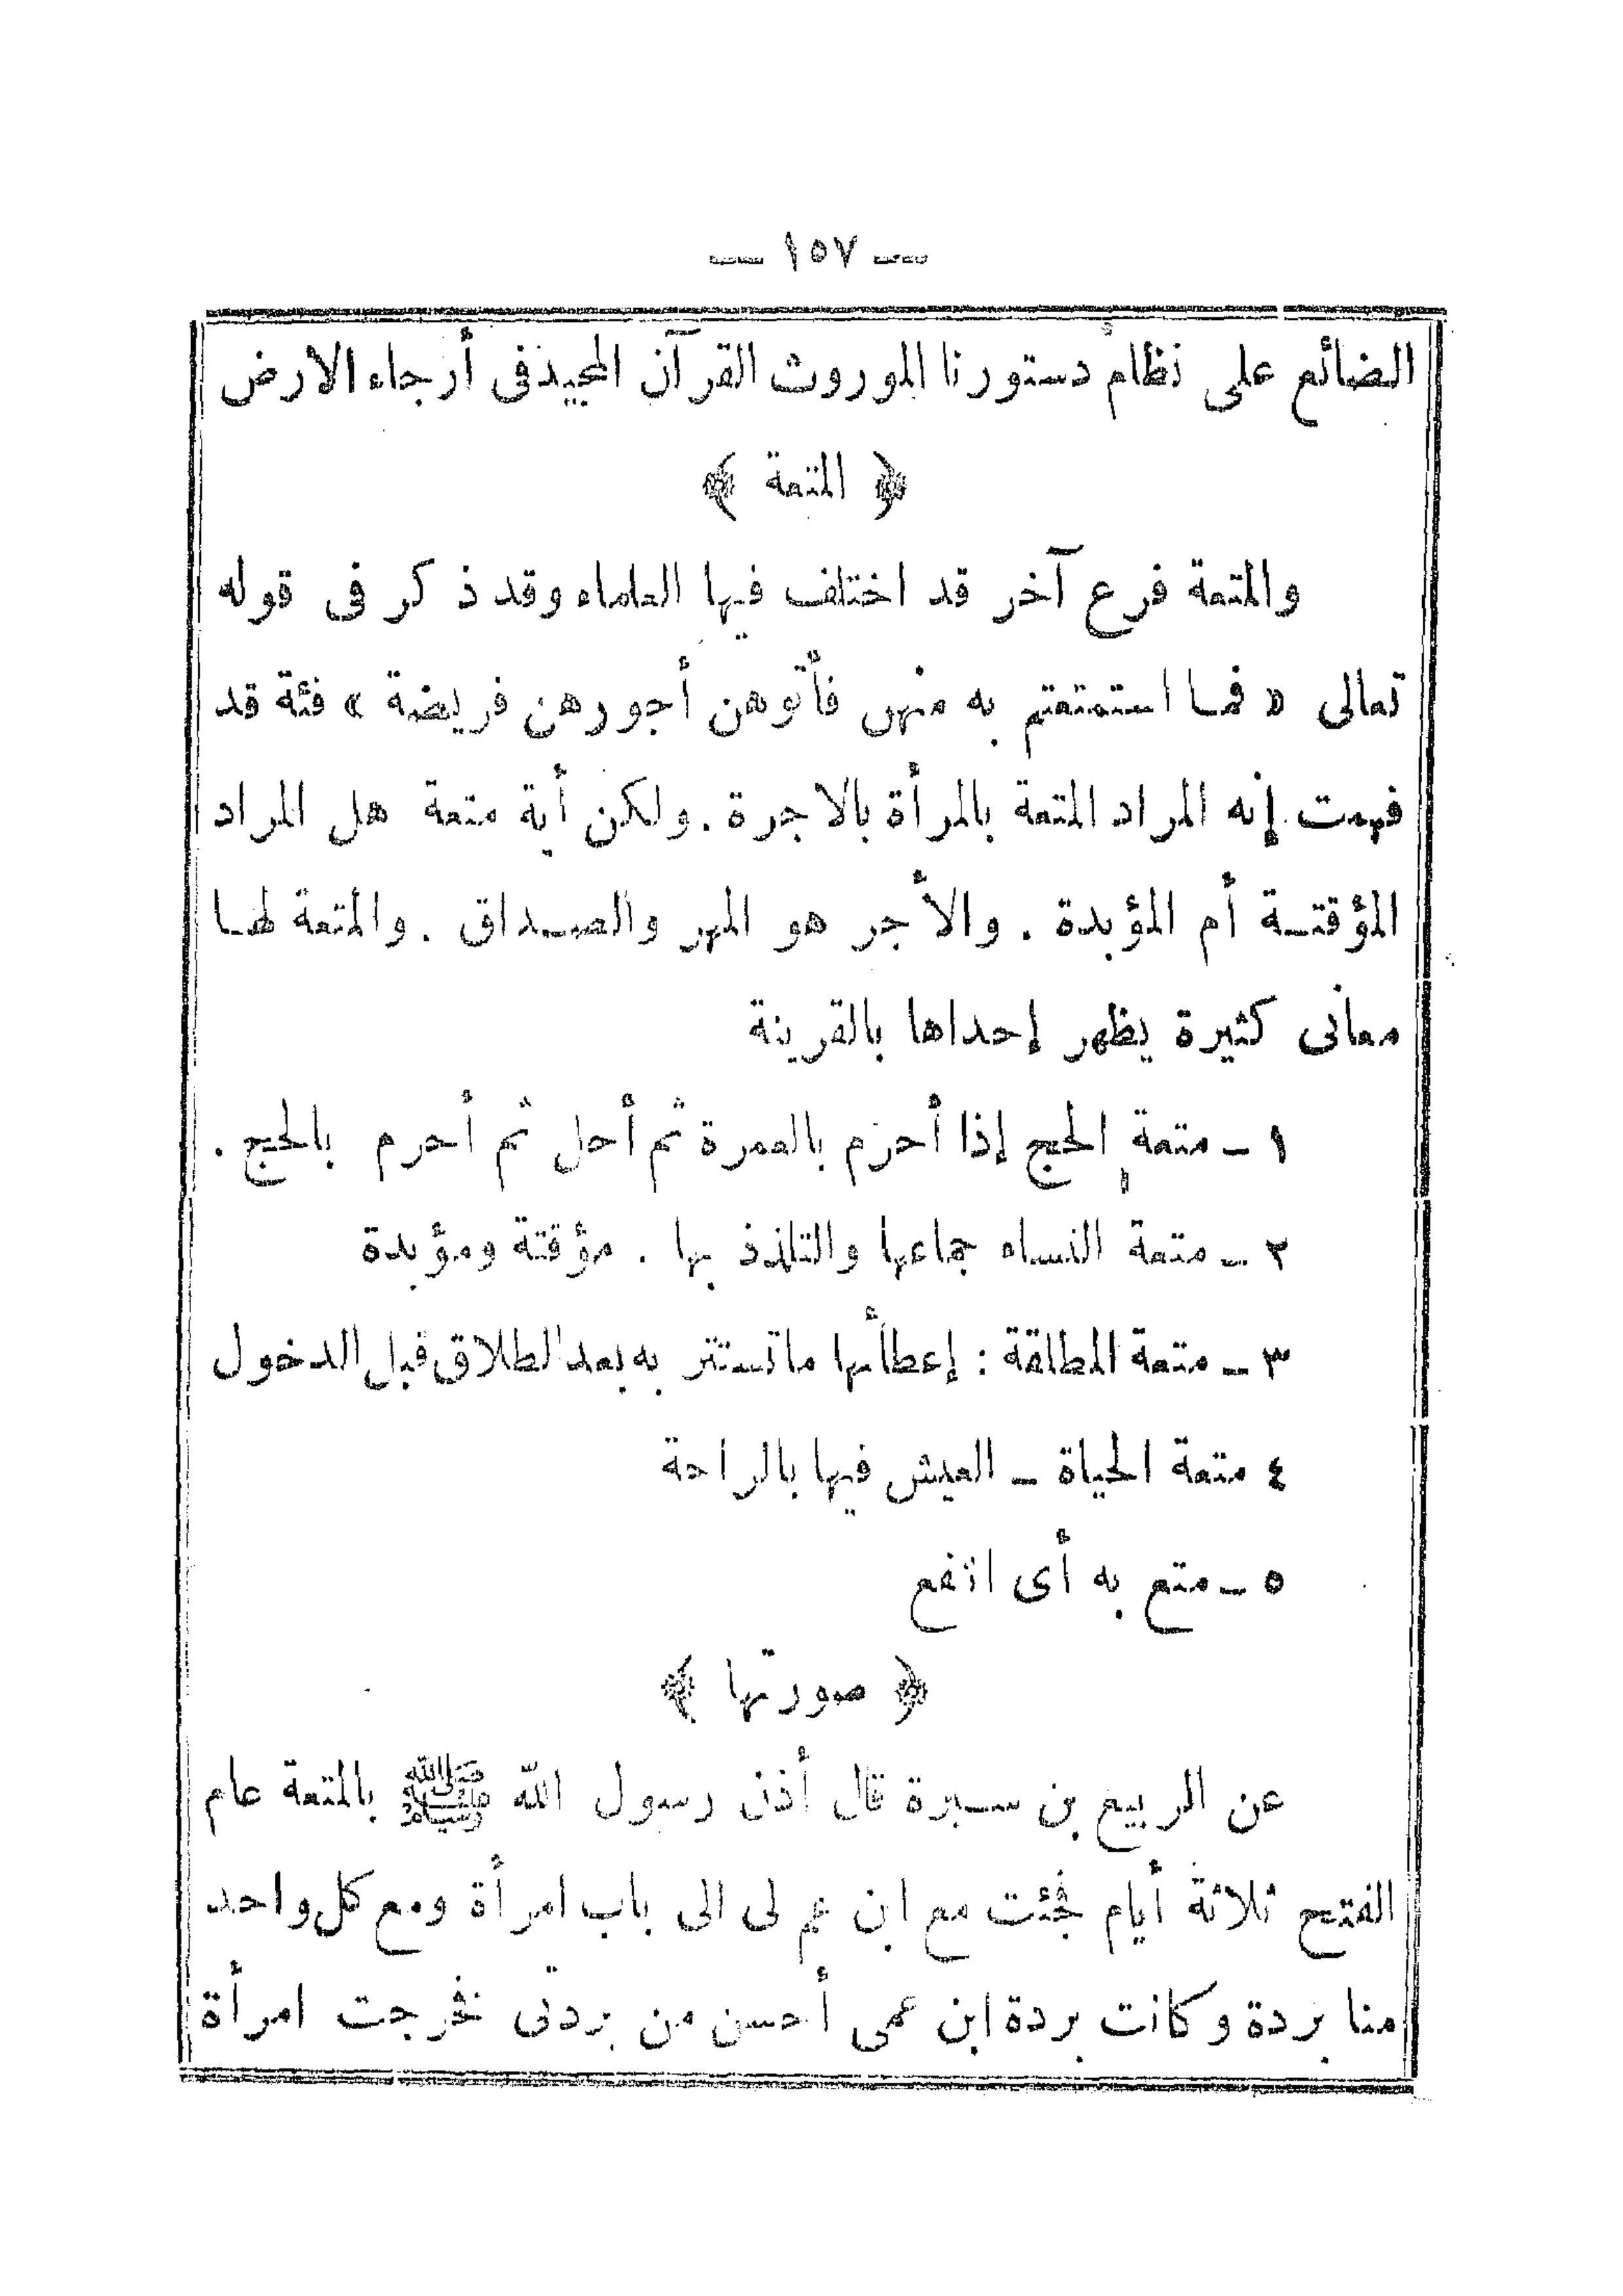 — ١٥٧ —
الضائع على نظام دستورنا الموروث القرآن المجيد فى أرجاء الارض
﴿ المتعة ﴾
والمتعة فرع آخر قد اختلف فيها العلماء وقد ذكر فى قوله
تعالى « فما استمتعتم به منهن فأتوهن أجورهن فريضة » فئة قد
فهمت إنه المراد المتعة بالمرأة بالاجرة . ولكن أية متعة هل المراد
المؤقتة أم المؤبدة . والأجر هو المهر والصداق . والمتعة لها
معانى كثيرة يظهر إحداها بالقرينة
١ - متعة الحج إذا أحرم بالعمرة ثم أحل ثم أحرم بالحج .
٢ - متعة النساء جماعها والتلذذ بها . مؤقتة ومؤبدة
٣ - متعة المطلقة : إعطائها ماتستتر به بعد الطلاق قبل الدخول
٤ متعة الحياة - العيش فيها بالراحة
٥ - متع به أى انفع
﴿ صورتها ﴾
عن الربيع بن سبرة قال أذن رسول الله ﷺ بالمتعة عام
الفتح ثلاثة أيام فجئت مع ابن عم لى الى باب امرأة ومع كل واحد
منا بردة وكانت بردة ابن عمى أحسن من بردتى فخرجت امرأة